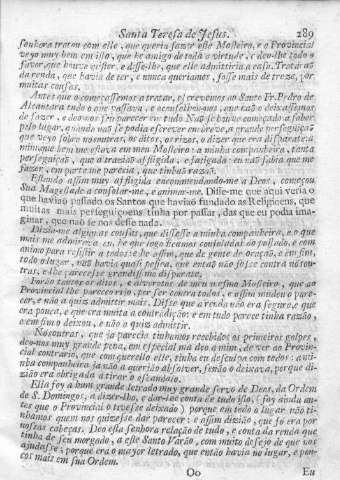 Santa Teresa de Jesus. 289
senhora tratou com elle, que queria fazer este Mosteiro, e o Provincial
veyo muy bem em isso, que he amigo de toda a virtude, e deu-lhe todo o
favor, que houve mister, e disse-lhe, que elle admittiria a casa. Tratarão
da renda, que havia de ter, e nunca queriamos, fosse mais de treze, por
muitas cousas.
Antes que o começassemos a tratar, escrevemos ao Santo Fr. Pedro de
Alcantara tudo o que passava, e aconselhou-nos, que não o deixassemos
de fazer, e deo-nos seu parecer em tudo. Não se houve começado a saber
pelo lugar, quando não se podia escrever em breve, a grande perseguição
que veyo sobre nós outras, os ditos, os risos, o dizer que era disparate: a
mim, que bem me estava em meu Mosteiro: a minha companheira, tanta
perseguição, que a trazião afligida, e fatigada: eu não sabia que me
fazer, em parte me parecia, que tinhão razão.
Estando assim muy affligida encomendando-me a Deos, começou
Sua Magestade a consolar-me, e animar-me. Disse-me que aqui veria o
que havião passado os Santos que havião fundado as Religioens, que
muitas mais perseguiçoens tinha por passar, das que eu podia ima-
ginar, que não se nos desse nada.
Dizia-me algumas cousas, que dissesse a minha companheira, e o que
mais me admirava eu, he que logo ficamos consoladas do passado, e com
animo para resistir a todos: e he assim, que de gente de oração, e em fim,
todo o lugar, não havia quasi pessoa, que então não fosse contra nós ou-
tras, e lhe parecesse grandissimo disparate.
Forão tantos os ditos, e alvorotos de meu mesmo Mosteiro, que ao
Provincial lhe pareceo rijo, por-se contra todos, e assim mudou o pare-
cer, e não a quiz admittir mais. Disse que a renda não era segura, e que
era pouca, e que era muita a contradição: e em tudo parece tinha razão,
e em fim o deixou, e não a quiz admittir.
Nós outras, que já parecia tinhamos recebidos os primeiros golpes,
deu-nos muy grande pena, em especial ma deo a mim, de ver ao Provin-
cial contrario, que com querello elle, tinha eu desculpa com todos: a mi-
nha companheira já não a querião absolver, senão o deixava, porque di-
zião era obrigada a tirar o escandalo.
Ella foy a hum grande letrado muy grande servo de Deos, da Ordem
de S. Domingos, a dizer-lho, e dar-lhe conta de tudo isto, (foy ainda an-
tes que o Provincial o tivesse deixado) porque em todo o lugar não ti-
nhamos quem nos quizesse dar parecer: e assim dizião, que só era por
nossas cabeças. Deo esta senhora relação de tudo, e conta da renda que
tinha de seu morgado, a este Santo Varão, com muito desejo de que nos
ajudasse; porque era o mayor letrado, que então havia no lugar, e pou-
cos mais em sua Ordem.
Oo Eu